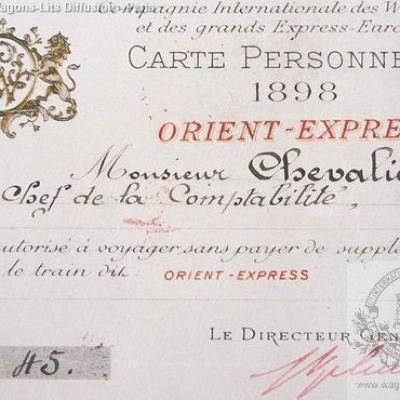 Wagons-Lits Diffusion Paris
Compagnie Internationale des W
et des grands Express-Euro
CARTE PERSONNE
1898
ORIENT-EXPRE
Monsieur Chevalie
Chef de la Comptabilité,
autorisé à voyager sans payer de supplé
le train dit ORIENT-EXPRESS
LE DIRECTEUR GÉN
45.